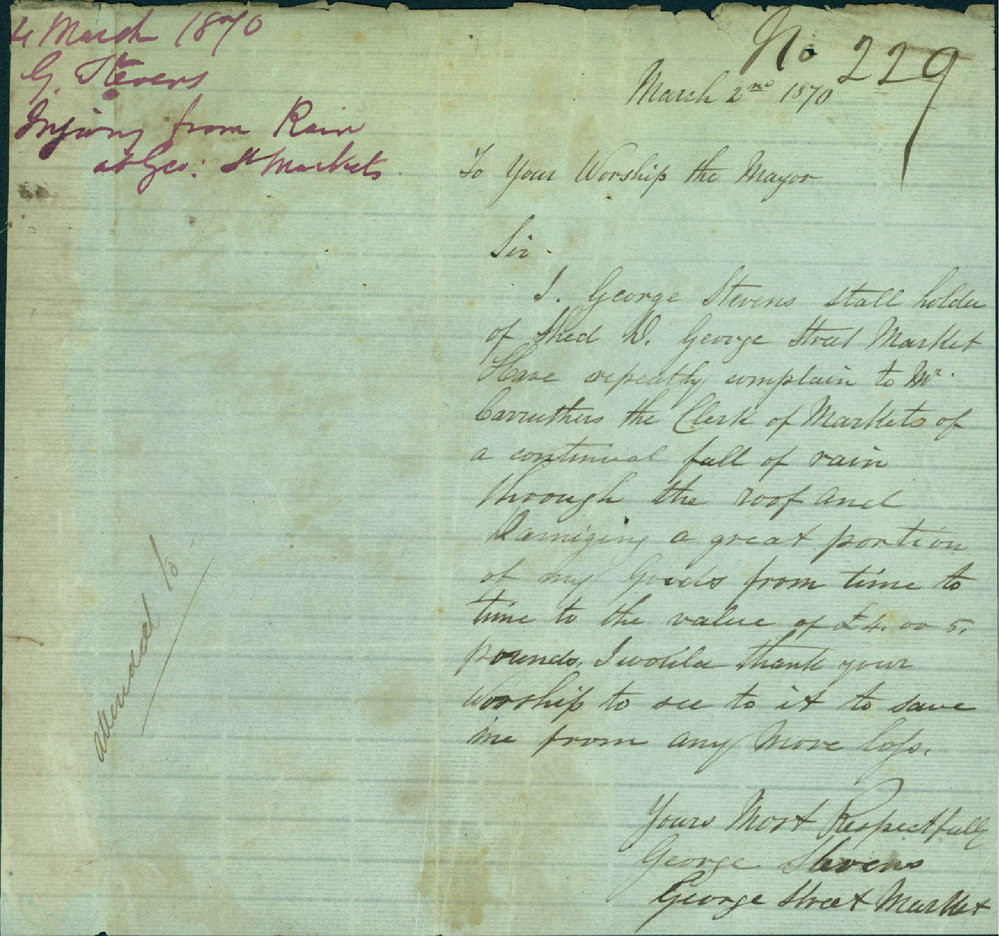 4 March 1870
G. Stevens
Injury from Rain
at Geo: St Markets
No 229
March 2nd 1870
To Your Worship the Mayor
Sir.
I. George Stevens stall holder
of Shed D. George Street Market
Have repeatly complain to Mr.
Carruthers the Clerk of Markets of
a continual fall of rain
through the roof and
Damiging a great portion
of my Goods from time to
time to the value of £4. or 5.
pounds. I would thank your
Worship to see to it to save
me from any More loss.
Yours Most Respectfully
George Stevens
George Street Market
attended to